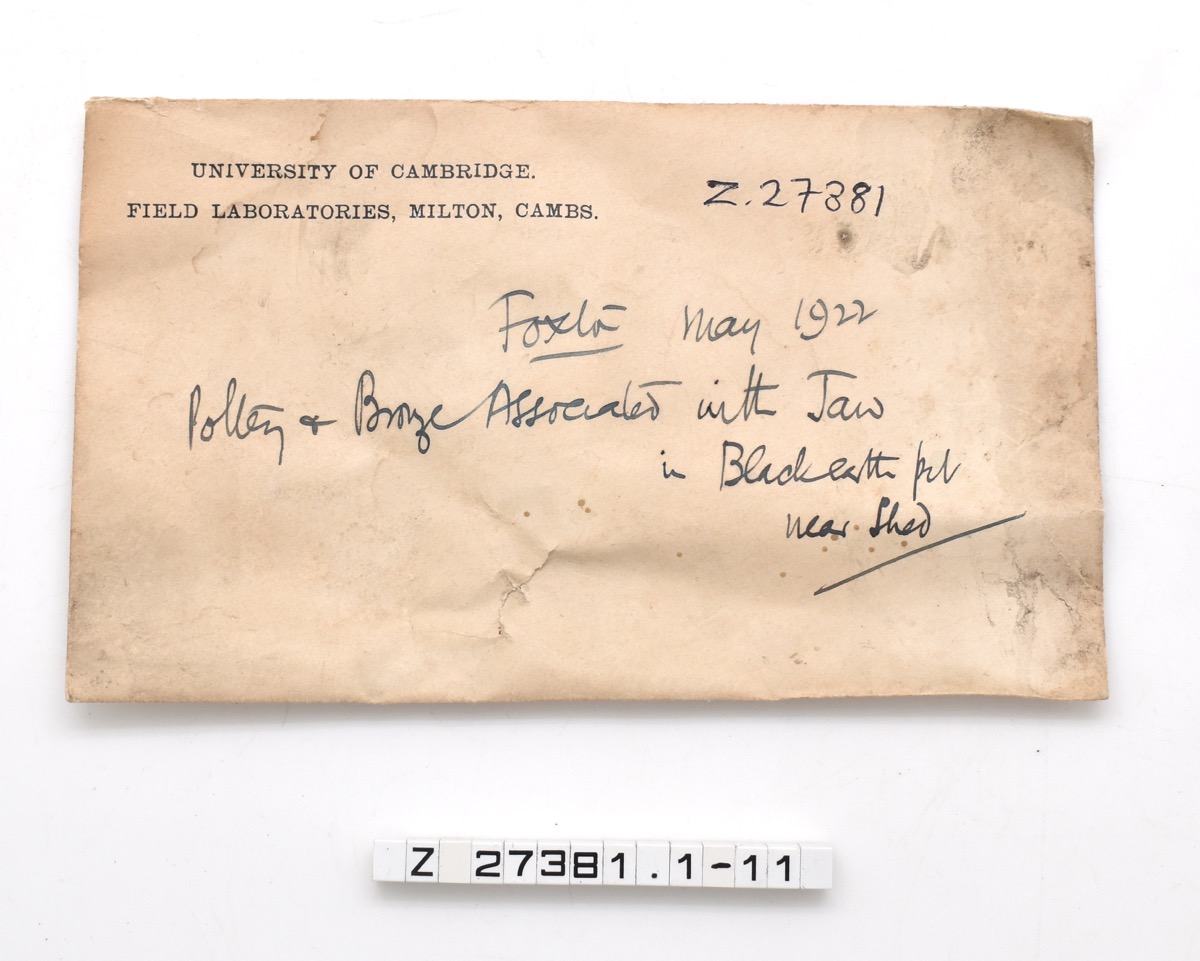 UNIVERSITY OF CAMBRIDGE.
FIELD LABORATORIES, MILTON, CAMBS.
Z.27381
Foxton May 1922
Pottery + Bronze Associated with Jaw
in Blackearth pit
near Shed
Z 27381.1-11